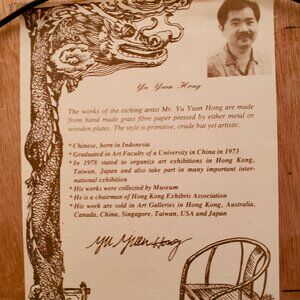 Yu Yuen Hong
The works of the etching artist Mr. Yu Yuen Hong are made
from hand made grass fibre paper pressed by either metal or
wooden plates. The style is primitive, crude but yet artistic.
* Chinese, born in Indonesia
* Graduated in Art Faculty of a University in China in 1973
* In 1978 stated to organize art exhibitions in Hong Kong,
Taiwan, Japan and also take part in many important inter-
national exhibition
* His works were collected by Museum
* He is a chairman of Hong Kong Exhibris Association
* His work are sold in Art Galleries in Hong Kong, Australia,
Canada, China, Singapore, Taiwan, USA and Japan
Yu Yuen Hong